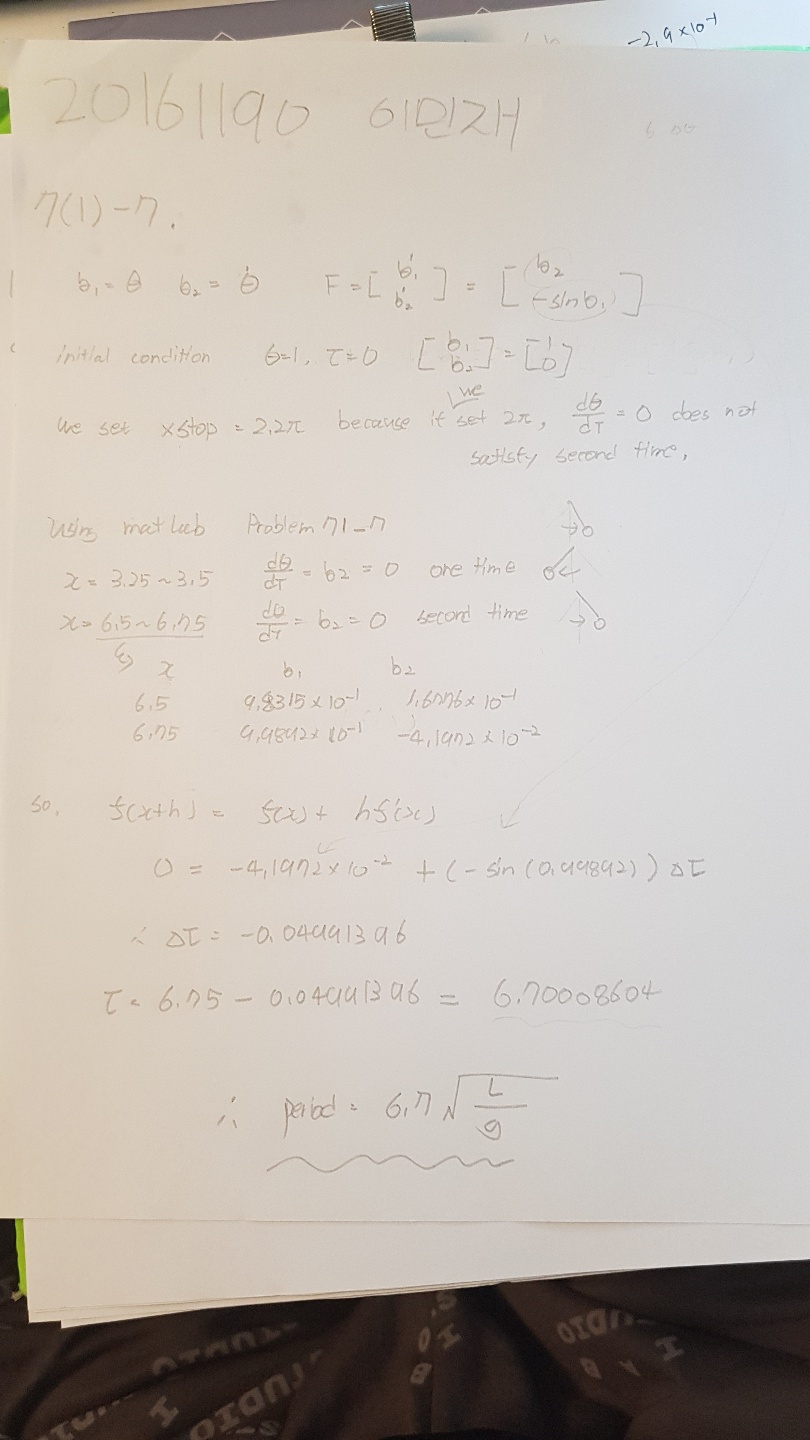 -2,9 x10⁻¹
20161190 이민재
7(1)-7.
b₁ = θ b₂ = θ̇ F = [ b₁' b₂' ] = [ b₂ -sinb₁ ]
initial condition θ=1, τ=0 [ b₁ b₂ ] = [ 1 0 ]
we
we set xstop = 2.2π because if set 2π, dθ/dτ = 0 does not
satisfy second time,
Using matlab Problem 71-7
x = 3.25 ~ 3.5 dθ/dτ = b2 = 0 one time
x = 6.5 ~ 6.75 dθ/dτ = b2 = 0 second time
x b₁ b₂
6.5 9.8315 x 10⁻¹ 1.6776 x 10⁻¹
6.75 9.9892 x 10⁻¹ -4.1972 x 10⁻²
So, f(x+h) = f(x) + hf'(x)
0 = -4.1972 x 10⁻² + (-sin(0.99892)) Δτ
∴ Δτ = -0.04991396
τ = 6.75 - 0.04991396 = 6.70008604
∴ period = 6.7 √(L/g)